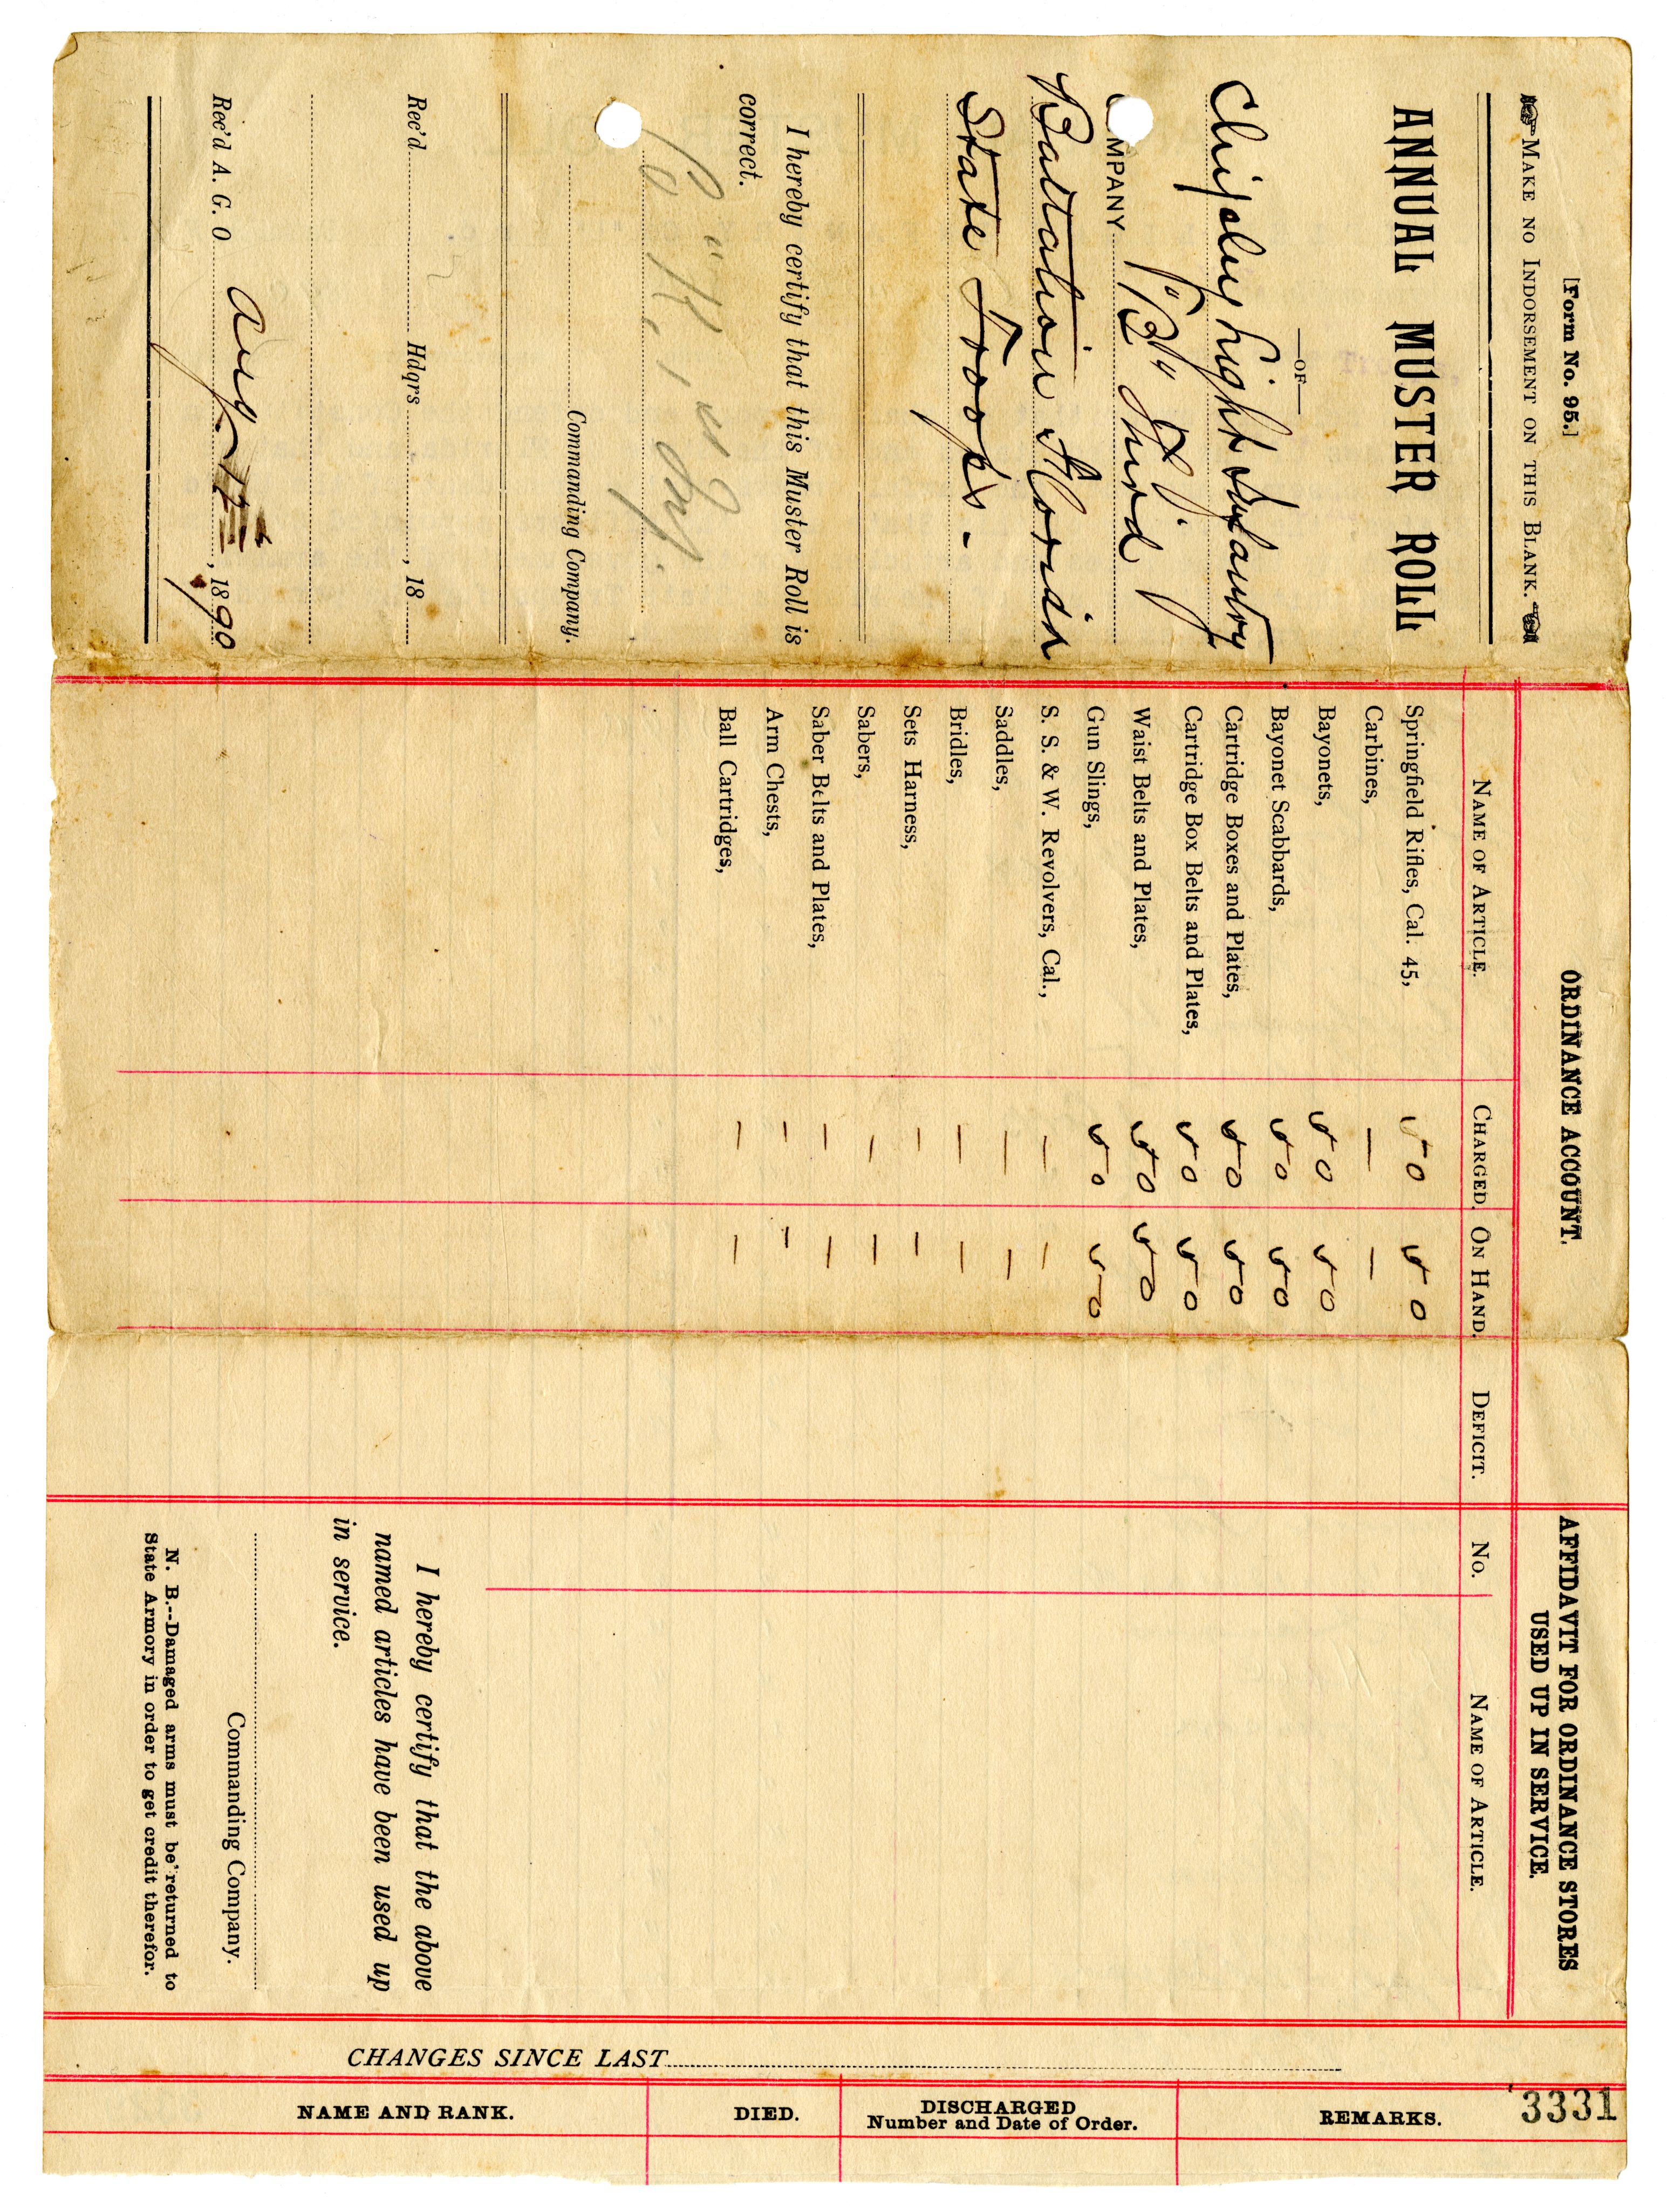 [Form No. 95.]
MAKE NO INDORSEMENT ON THIS BLANK.
ANNUAL MUSTER ROLL
—OF—
Chipley Light Infantry
MPANY "B" Third
Battalion Florida
State Troops -
I hereby certify that this Muster Roll is
correct.
Co "K, 1st Inf.
Commanding Company.
Rec'd Hdqrs , 18
Rec'd A. G. O Aug 17 , 1890
ORDINANCE ACCOUNT.
NAME OF ARTICLE. CHARGED. ON HAND. DEFICIT.
Springfield Rifles, Cal. 45, 50 50
Carbines, — —
Bayonets, 50 50
Bayonet Scabbards, 50 50
Cartridge Boxes and Plates, 50 50
Cartridge Box Belts and Plates, 50 50
Waist Belts and Plates, 50 50
Gun Slings, 50 50
S. S. & W. Revolvers, Cal., — —
Saddles, — —
Bridles, — —
Sets Harness, — —
Sabers, — —
Saber Belts and Plates, — —
Arm Chests, — —
Ball Cartridges, — —
AFFIDAVIT FOR ORDINANCE STORES
USED UP IN SERVICE.
NO. NAME OF ARTICLE.
I hereby certify that the above
named articles have been used up
in service.
Commanding Company.
N. B.--Damaged arms must be returned to
State Armory in order to get credit therefor.
CHANGES SINCE LAST
NAME AND RANK. DIED. DISCHARGED REMARKS.
Number and Date of Order.
3331